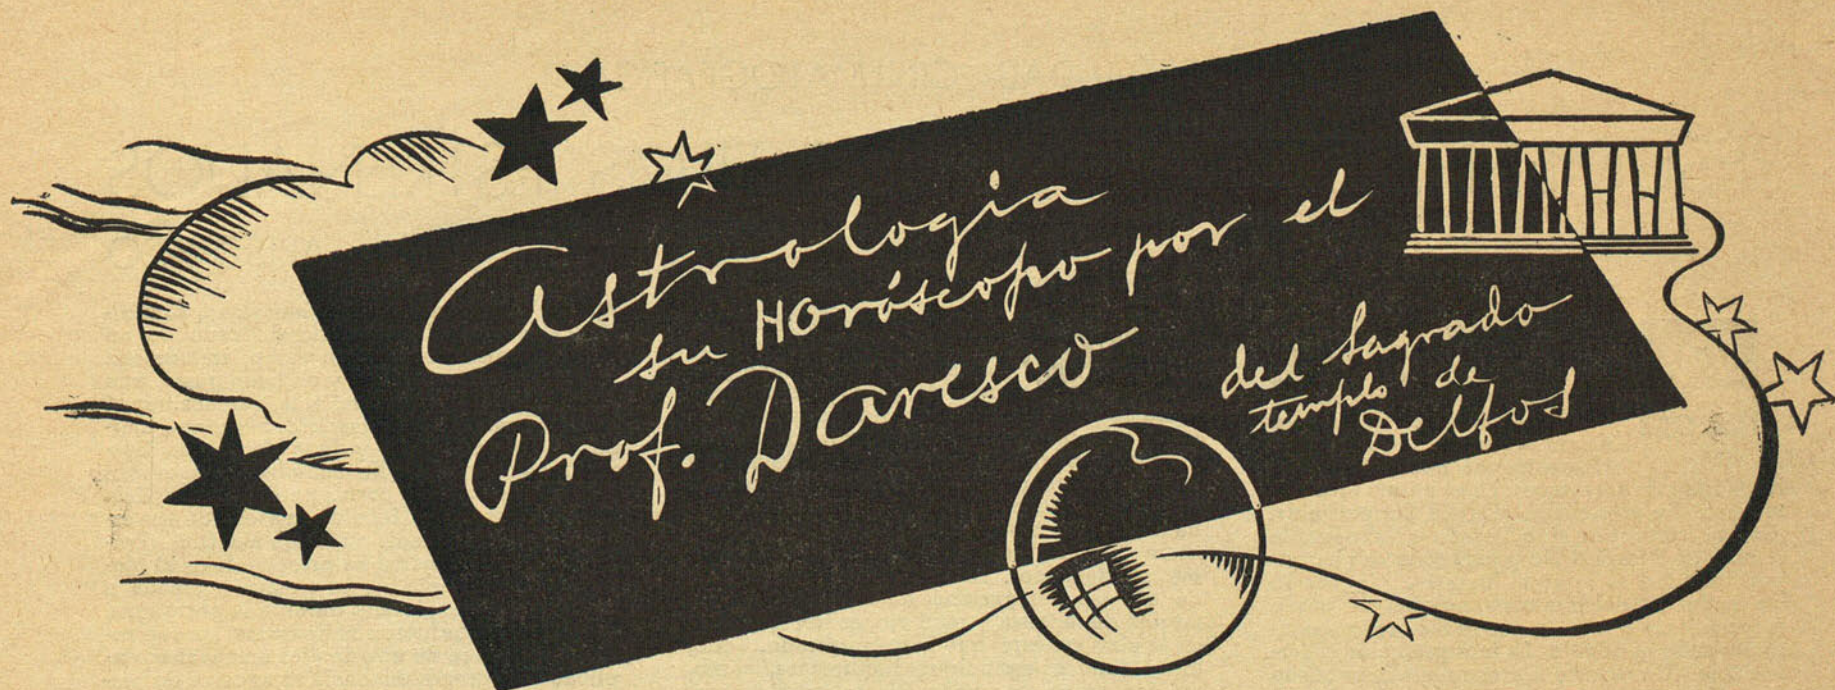 Astrologia
su Horóscopo por el
Prof. Daresco
del sagrado
templo de
Delfos